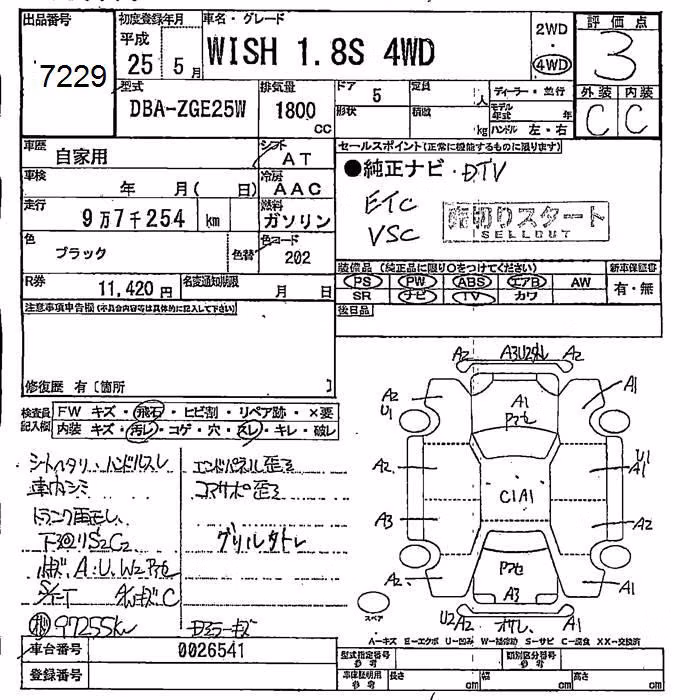 出品番号
7229
初度登録年月
平成
25 5月
車名・グレード
WISH 1.8S 4WD
2WD
・
4WD
評価点
3
外装 内装
C C
型式
DBA-ZGE25W
排気量
1800
cc
ドア 5
定員 人
形状
積載 kg
ディーラー・並行
モデル年式 年
ハンドル 左・右
車歴
自家用
シフト
AT
車検
年 月( 日)
冷房
AAC
走行
9万7千254 km
燃料
ガソリン
色
ブラック
色替
色コード
202
R券
11,420 円
名変通知期限
月 日
セールスポイント(正常に機能するものに限ります)
●純正ナビ・DTV
ETC
VSC
売切りスタート
SELLOUT
装備品 (純正品に限り○をつけてください)
PS PW ABS エアB AW
SR ナビ TV カワ
新車保証書
有・無
後日品
注意事項申告欄(不具合内容等は具体的に記入して下さい)
修復歴 有〔箇所 〕
検査員記入欄
FW キズ・飛石・ヒビ割・リペア跡・×要
内装 キズ・汚レ・コゲ・穴・スレ・キレ・破レ
シートヘタリ・ハンドルスレ
車内シミ
エンドパネル歪ミ
コアサポ歪ミ
グリルタトレ
下回りS2C2
A.U.W2
97255km
ドアミラーキズ
A2 A2
A2 U1 A1 A1
A2 C1A1 U1 A1
A3 A2
A2 A3 A1
U2A2 A2
スペア
A—キズ E—エクボ U—凹み W—補修跡 S—サビ C—腐食 XX—交換済
車台番号 0026541
登録番号
型式指定番号
参考
類別区分番号
参考
車庫証明用
参考
長さ cm 幅 cm 高さ cm